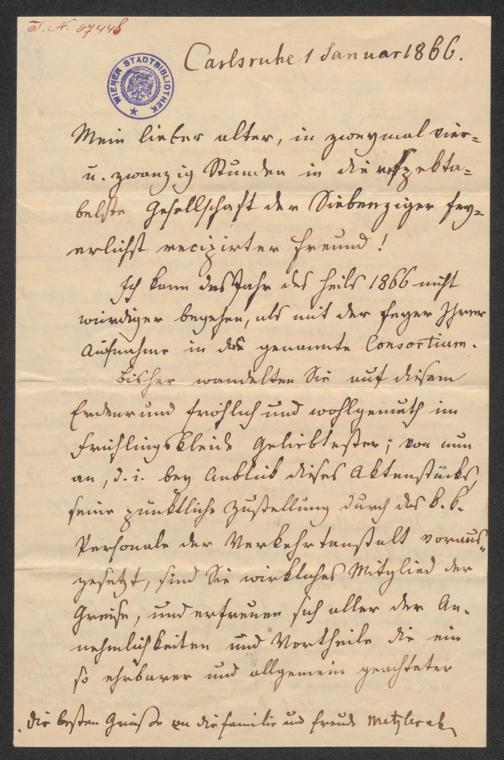 J. N. 67448
WIENER STADTBIBLIOTHEK
Carlsruhe 1 Januar 1866.
Mein lieber alter, in zweymal vier=
u. zwanzig Stunden in die respekta=
belste Gesellschaft der Siebenziger fey=
erlichst recipirter Freund!
Ich kann das Jahr des Heils 1866 nicht
würdiger begehen, als mit der Feyer Ihrer
Aufnahme in das genannte Consortium.
Bisher wandelten Sie auf diesem
Erdenrund fröhlich und wohlgemuth im
Frühlingskleide Geliebtester; von nun
an, d. i. bey Anblick dieses Aktenstücks,
seine pünktliche Zustellung durch das k. k.
Personale der Verkehrsanstalt voraus=
gesetzt, sind Sie wirkliches Mitglied der
Greise, und erfreuen sich aller der An=
nehmlichkeiten und Vortheile die ein
so ehrbarer und allgemein geachteter
die besten Grüße an die Familie und Freund